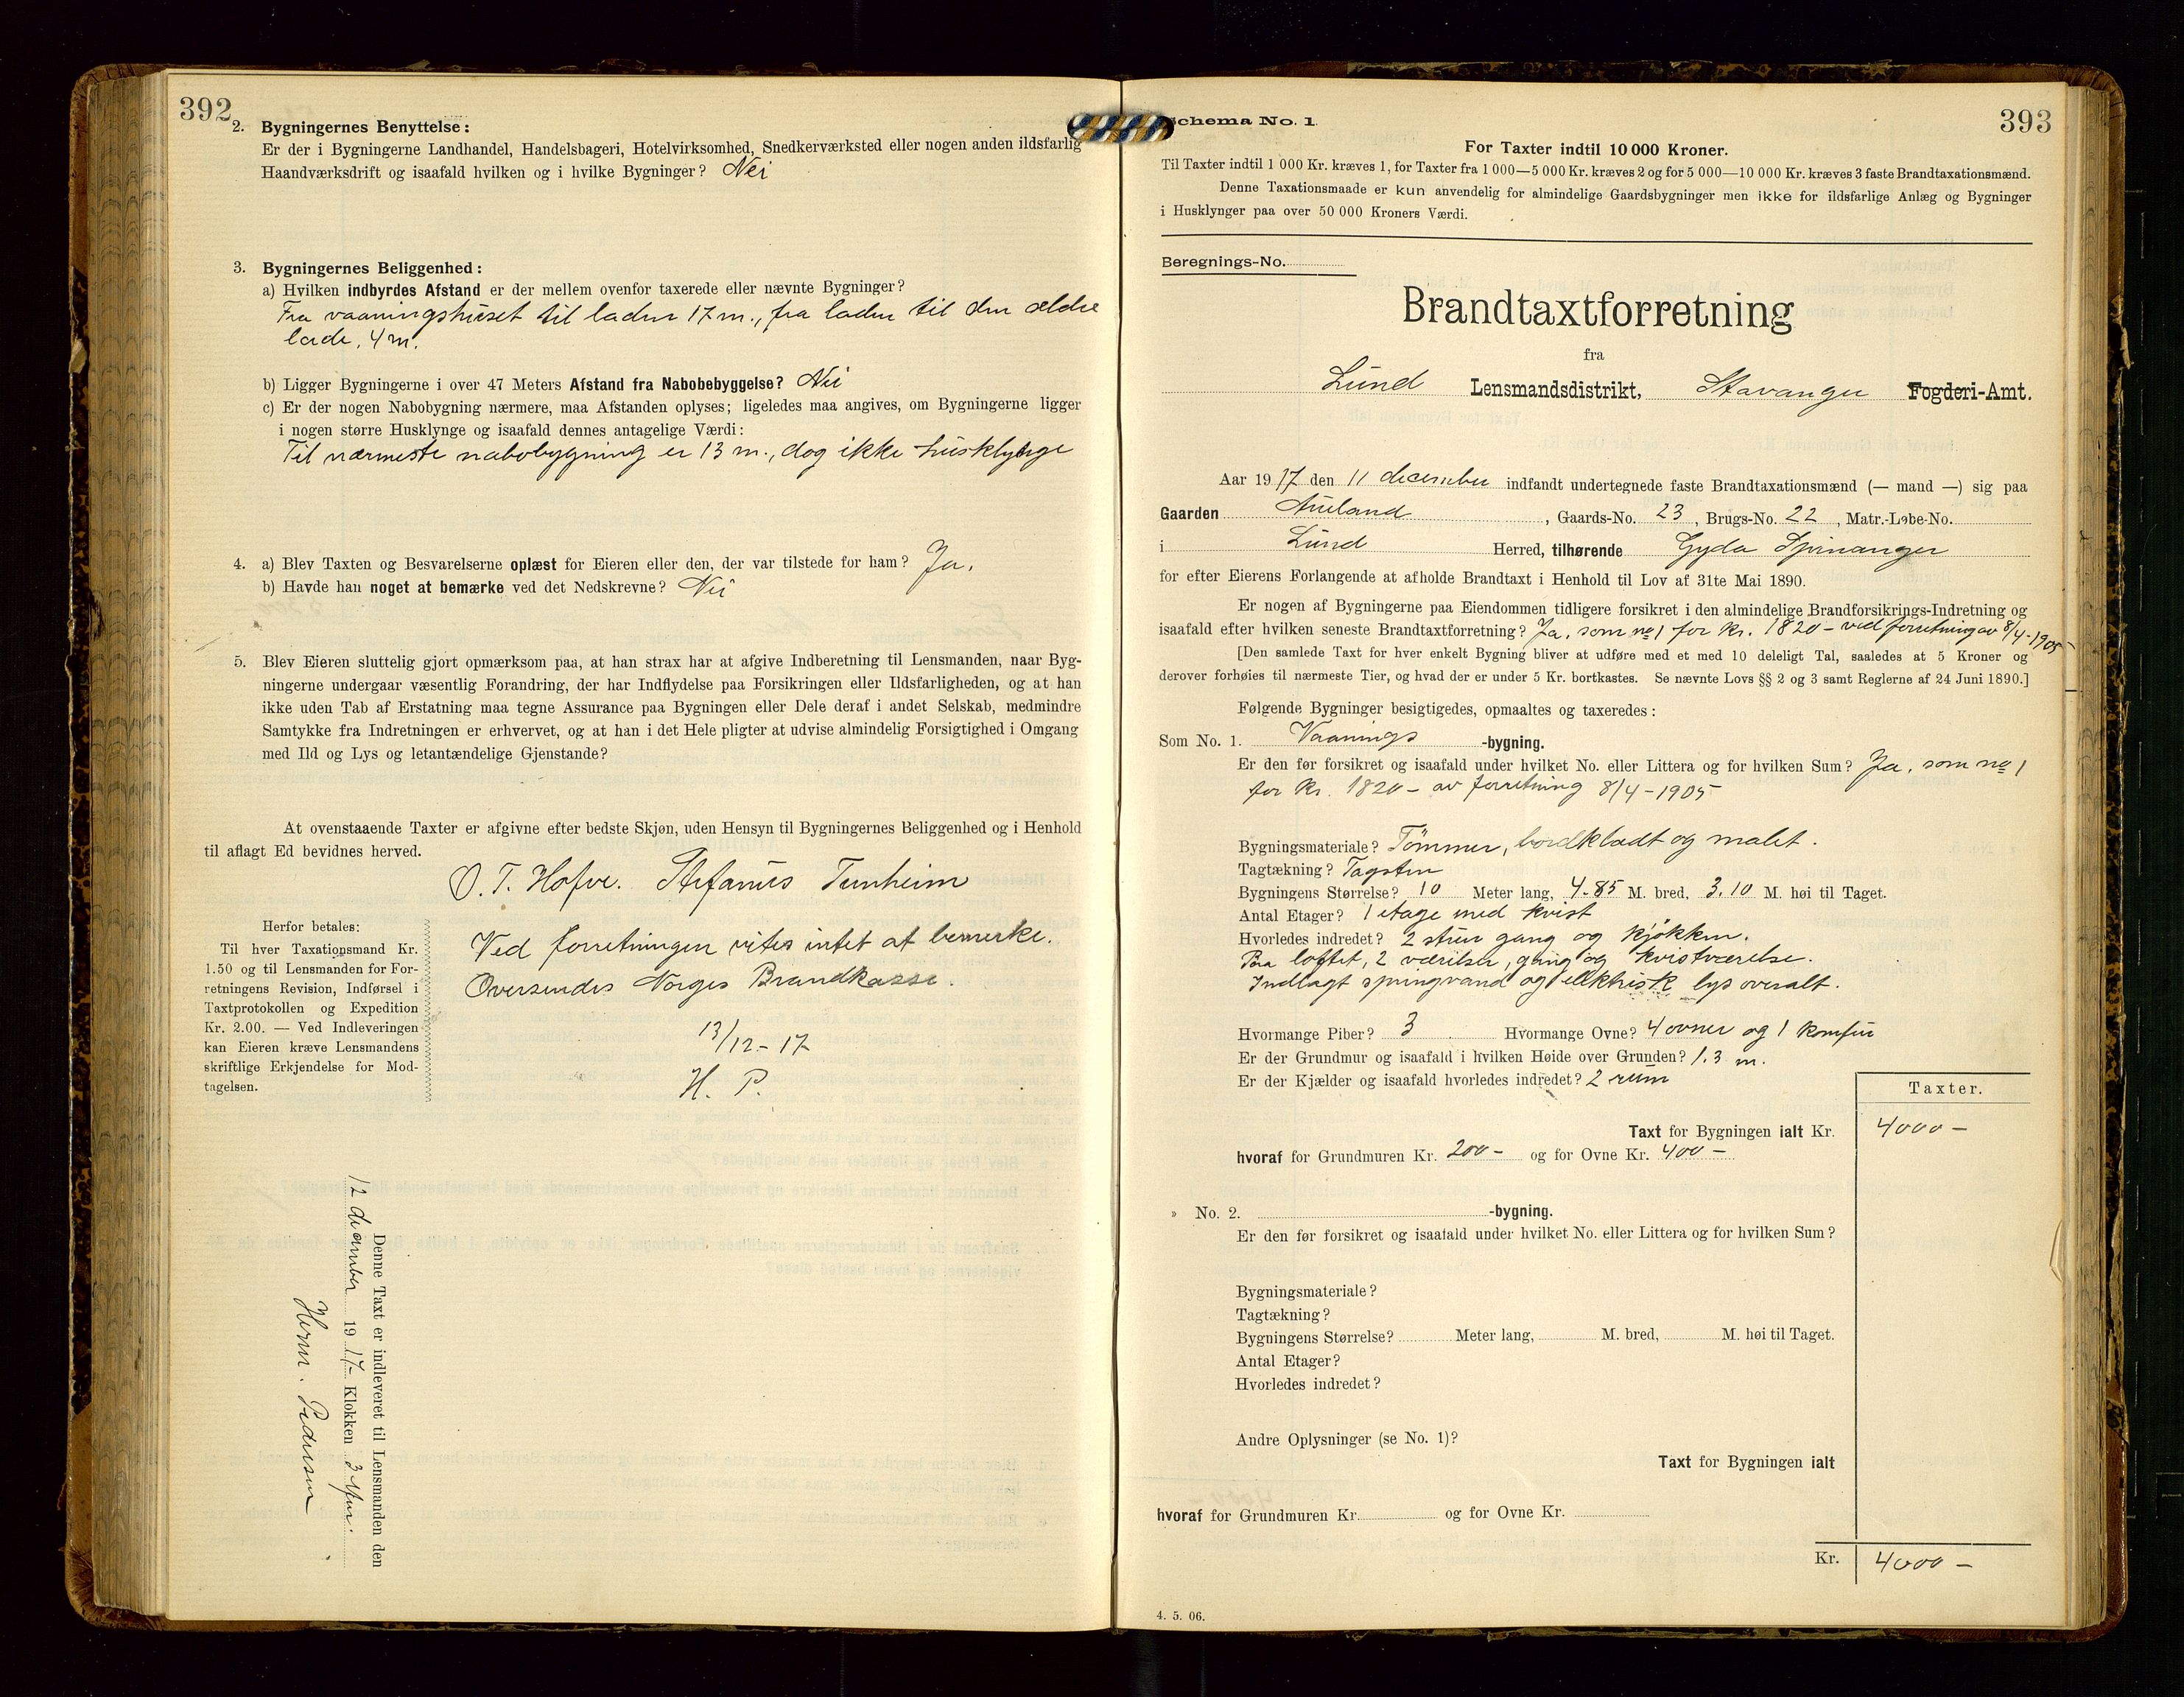 392
2. Bygningernes Benyttelse:
Er der i Bygningerne Landhandel, Handelsbageri, Hotelvirksomhed, Snedkerværksted eller nogen anden ildsfarlig
Haandværksdrift og isaafald hvilken og i hvilke Bygninger? Nei
3. Bygningernes Beliggenhed:
a) Hvilken indbyrdes Afstand er der mellem ovenfor taxerede eller nævnte Bygninger?
Fra vaaningshuset til laden 17 m., fra laden til den ældre
lade, 4 m.
b) Ligger Bygningerne i over 47 Meters Afstand fra Nabobebyggelse? Nei
c) Er der nogen Nabobygning nærmere, maa Afstanden oplyses; ligeledes maa angives, om Bygningerne ligger
i nogen større Husklynge og isaafald dennes antagelige Værdi:
Til nærmeste nabobygning er 13 m., dog ikke husklynge
4. a) Blev Taxten og Besvarelserne oplæst for Eieren eller den, der var tilstede for ham? Ja.
b) Havde han noget at bemærke ved det Nedskrevne? Nei
5. Blev Eieren sluttelig gjort opmærksom paa, at han strax har at afgive Indberetning til Lensmanden, naar Byg-
ningerne undergaar væsentlig Forandring, der har Indflydelse paa Forsikringen eller Ildsfarligheden, og at han
ikke uden Tab af Erstatning maa tegne Assurance paa Bygningen eller Dele deraf i andet Selskab, medmindre
Samtykke fra Indretningen er erhvervet, og at han i det Hele pligter at udvise almindelig Forsigtighed i Omgang
med Ild og Lys og letantændelige Gjenstande?
At ovenstaaende Taxter er afgivne efter bedste Skjøn, uden Hensyn til Bygningernes Beliggenhed og i Henhold
til aflagt Ed bevidnes herved.
O. T. Hofve. Stefanus Tunheim
Herfor betales:
Til hver Taxationsmand Kr.
1.50 og til Lensmanden for For-
retningens Revision, Indførsel i
Taxtprotokollen og Expedition
Kr. 2.00. — Ved Indleveringen
kan Eieren kræve Lensmandens
skriftlige Erkjendelse for Mod-
tagelsen.
Ved forretningen vites intet at bemerke.
Oversendes Norges Brandkasse.
13/12-17
H. P.
Denne Taxt er indleveret til Lensmanden den
12 december 1917 Klokken 3
Herm. Pedersen
Schema No. 1. 393
For Taxter indtil 10 000 Kroner.
Til Taxter indtil 1 000 Kr. kræves 1, for Taxter fra 1 000—5 000 Kr. kræves 2 og for 5 000—10 000 Kr. kræves 3 faste Brandtaxationsmænd.
Denne Taxationsmaade er kun anvendelig for almindelige Gaardsbygninger men ikke for ildsfarlige Anlæg og Bygninger
i Husklynger paa over 50 000 Kroners Værdi.
Beregnings-No.
Brandtaxtforretning
fra
Lund Lensmandsdistrikt, Stavanger Fogderi-Amt.
Aar 1917 den 11 december indfandt undertegnede faste Brandtaxationsmænd (— mand —) sig paa
Gaarden Aueland, Gaards-No. 23, Brugs-No. 22, Matr.-Løbe-No.
i Lund Herred, tilhørende Gyda Spinanger
for efter Eierens Forlangende at afholde Brandtaxt i Henhold til Lov af 31te Mai 1890.
Er nogen af Bygningerne paa Eiendommen tidligere forsikret i den almindelige Brandforsikrings-Indretning og
isaafald efter hvilken seneste Brandtaxtforretning? Ja, som no 1 for Kr. 1820 - ved forretning av 8/4-1905
[Den samlede Taxt for hver enkelt Bygning bliver at udføre med et med 10 deleligt Tal, saaledes at 5 Kroner og
derover forhøies til nærmeste Tier, og hvad der er under 5 Kr. bortkastes. Se nævnte Lovs §§ 2 og 3 samt Reglerne af 24 Juni 1890.]
Følgende Bygninger besigtigedes, opmaaltes og taxeredes:
Som No. 1. Vaanings -bygning.
Er den før forsikret og isaafald under hvilket No. eller Littera og for hvilken Sum? Ja, som no 1
for Kr. 1820 - av forretning 8/4-1905
Bygningsmateriale? Tømmer, bordklædt og malet.
Tagtækning? Tagsten
Bygningens Størrelse? 10 Meter lang, 4.85 M. bred, 3.10 M. høi til Taget.
Antal Etager? 1 etage med kvist
Hvorledes indredet? 2 stuer gang og kjøkken.
Paa loftet, 2 værelser, gang og kvistværelse.
Indlagt springvand og elektrisk lys overalt.
Hvormange Piber? 3 Hvormange Ovne? 4 ovner og 1 komfur
Er der Grundmur og isaafald i hvilken Høide over Grunden? 1.3 m.
Er der Kjælder og isaafald hvorledes indredet? 2 rum
Taxter.
Taxt for Bygningen ialt Kr. 4000 -
hvoraf for Grundmuren Kr. 200 - og for Ovne Kr. 400 -
» No. 2. -bygning.
Er den før forsikret og isaafald under hvilket No. eller Littera og for hvilken Sum?
Bygningsmateriale?
Tagtækning?
Bygningens Størrelse? Meter lang, M. bred, M. høi til Taget.
Antal Etager?
Hvorledes indredet?
Andre Oplysninger (se No. 1)?
Taxt for Bygningen ialt
hvoraf for Grundmuren Kr. og for Ovne Kr.
Kr. 4000 -
4. 5. 06.